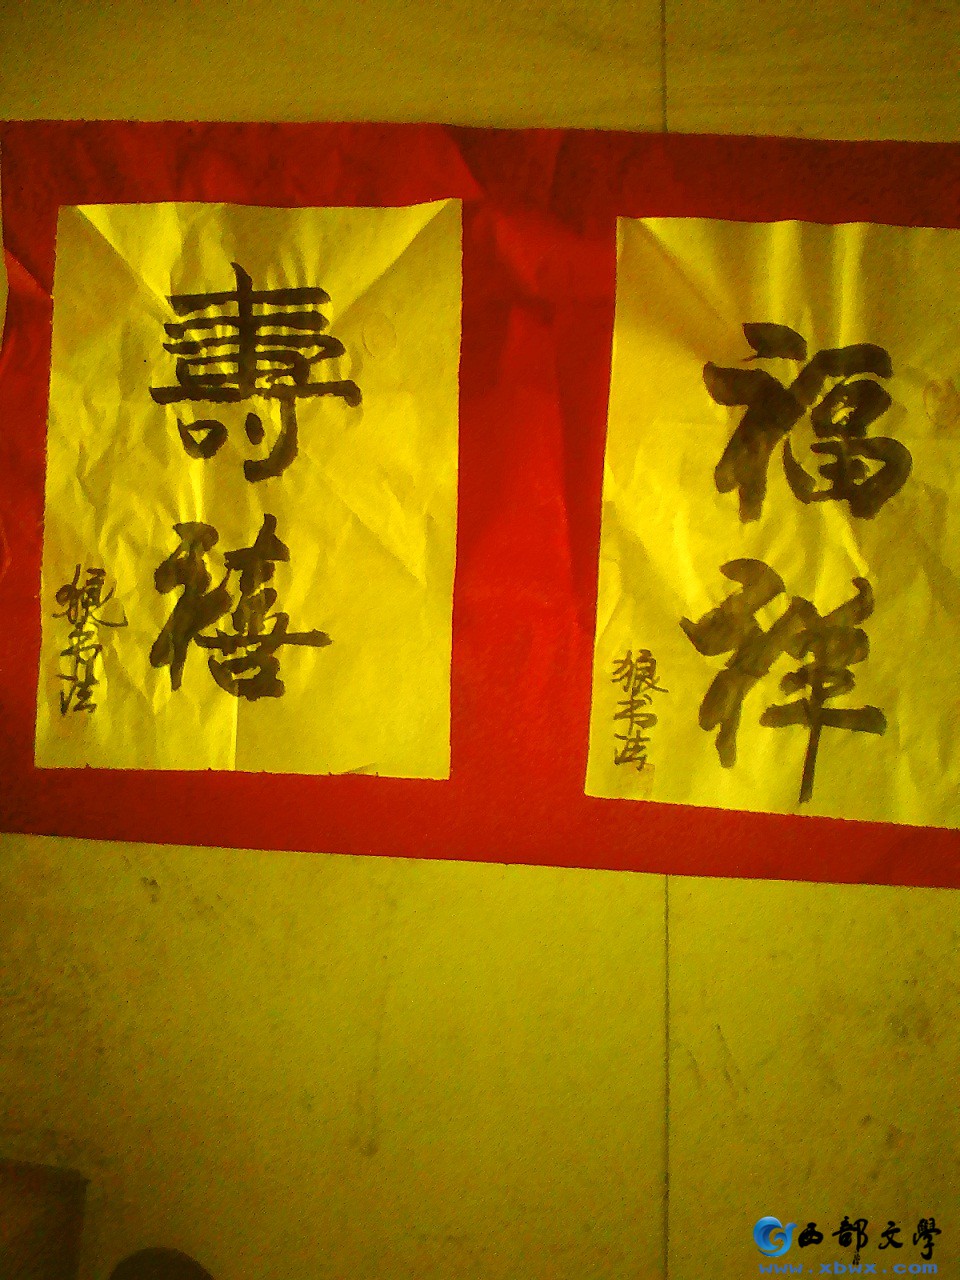 福祥
狼书法
壽禧
狼书法
西部文學
www.xbwx.com